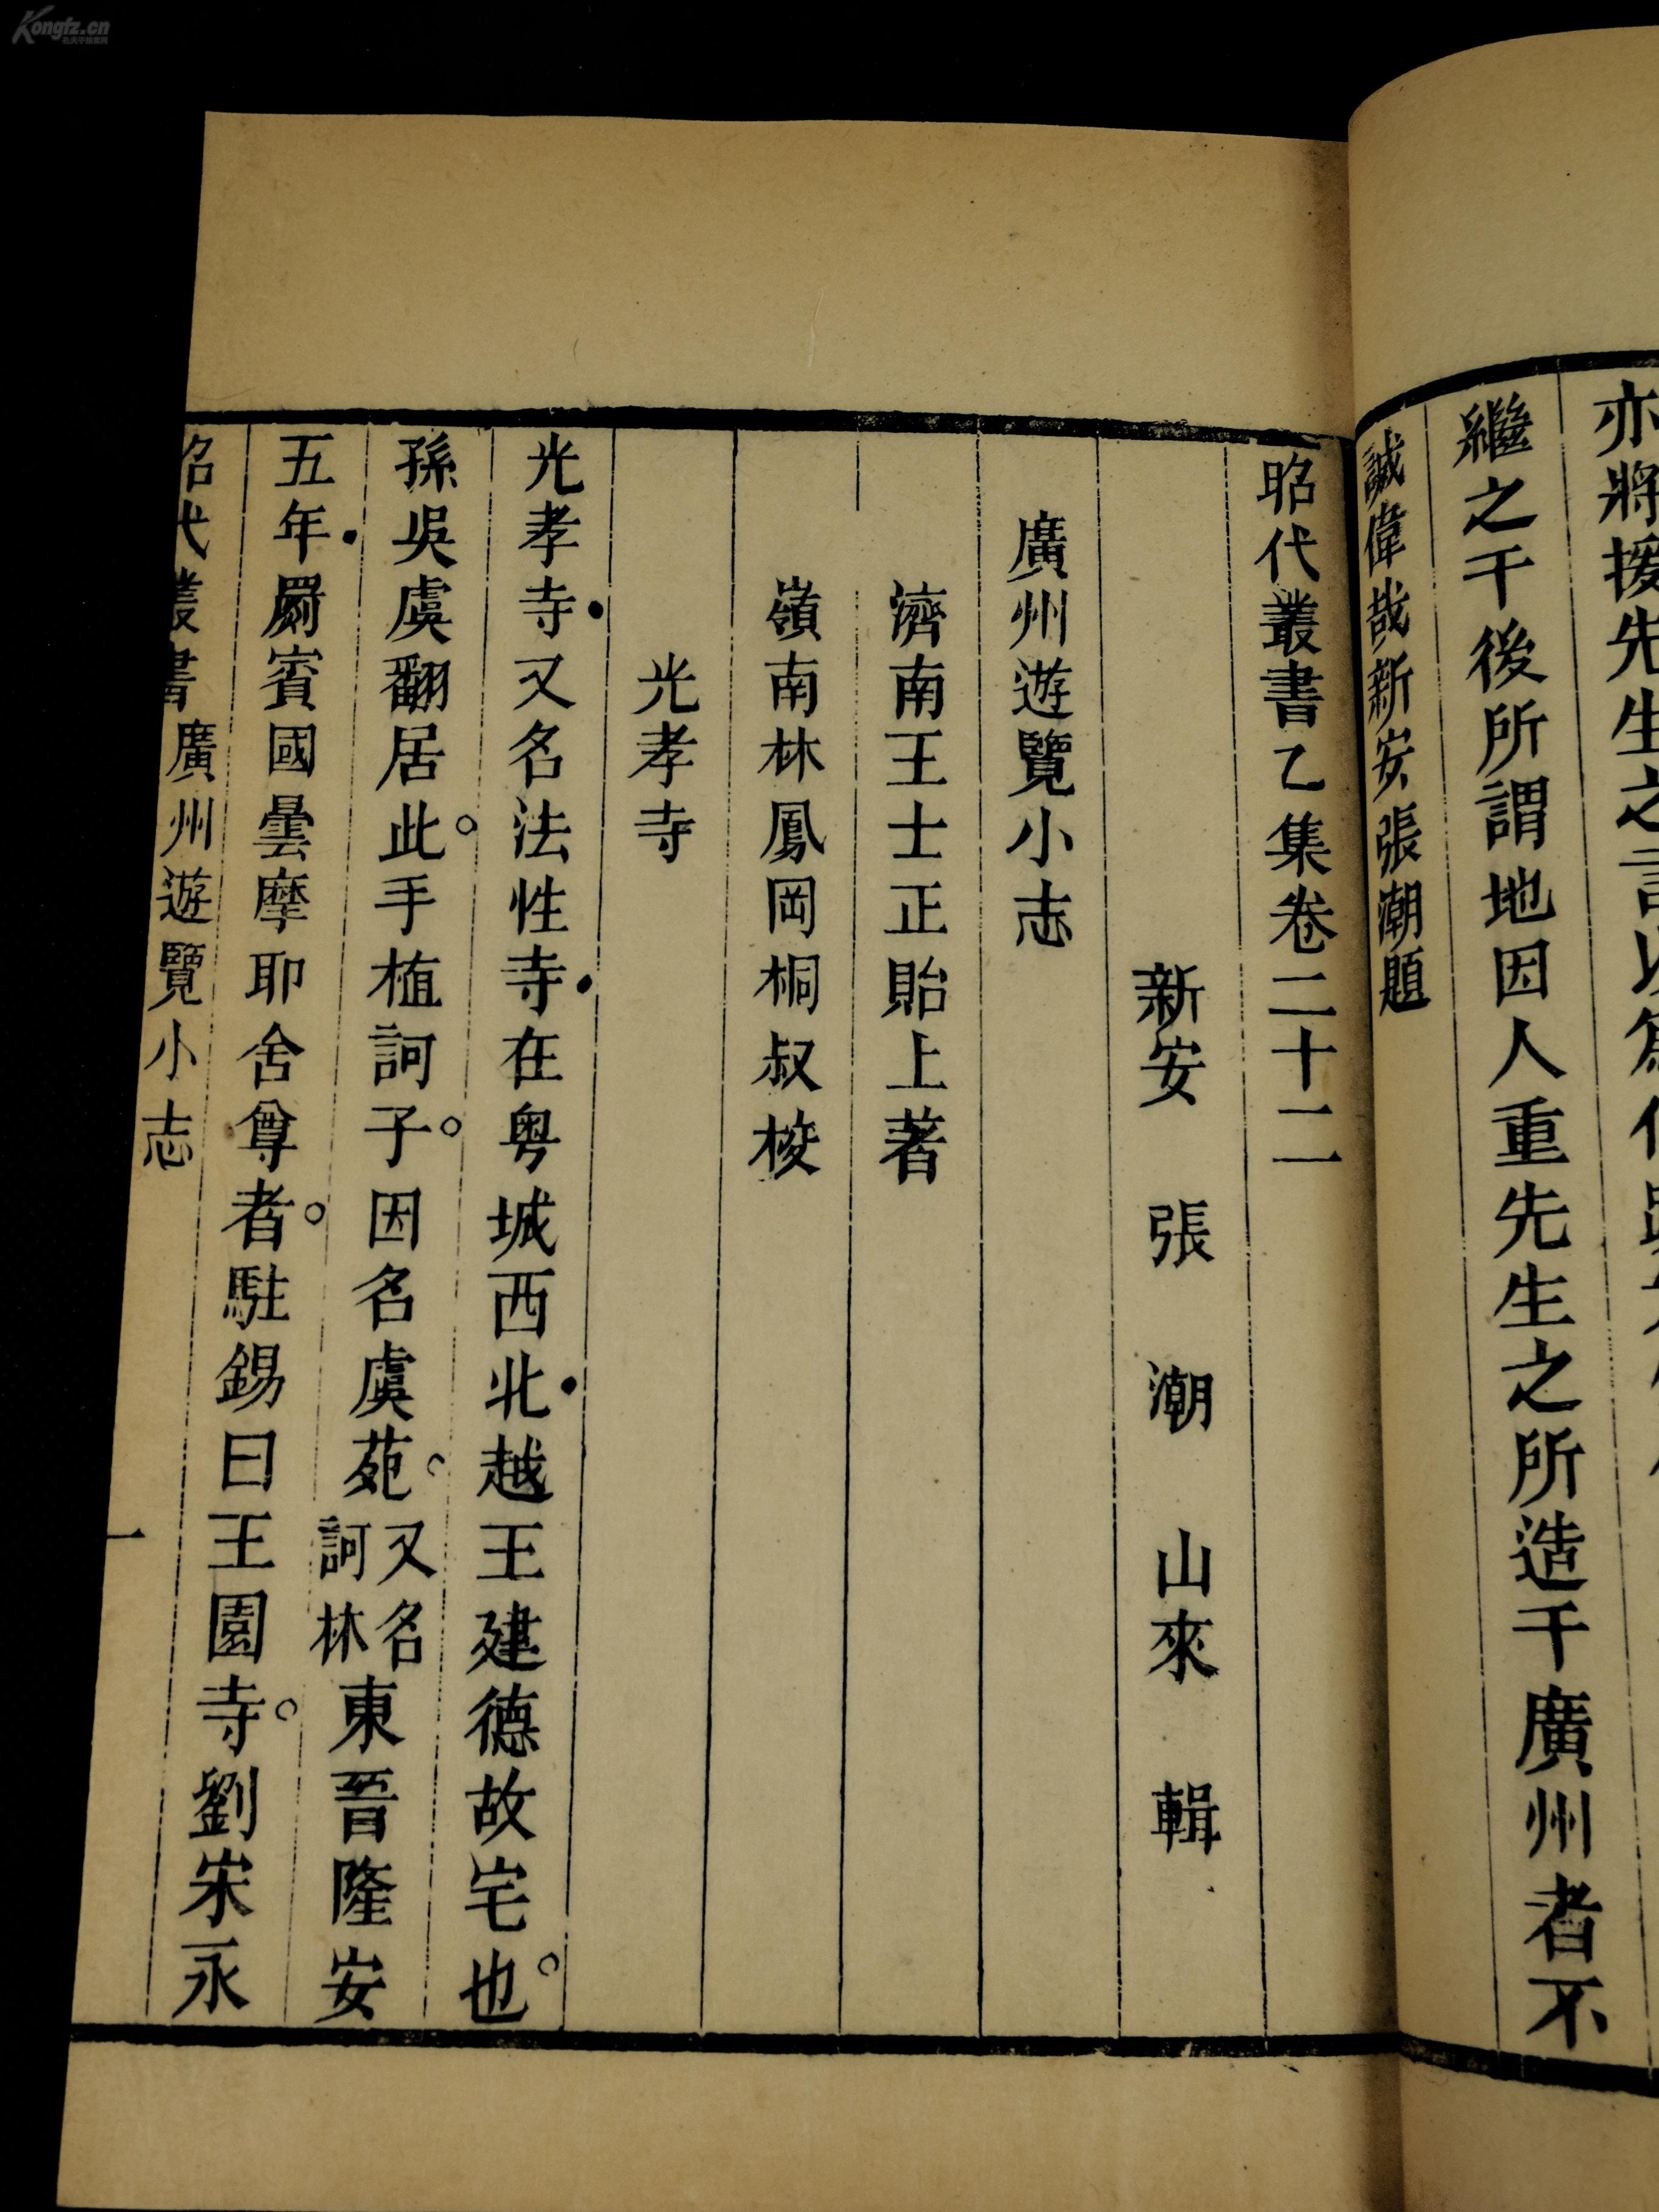 Kongfz.cn
亦將援先生之言以
繼之于後所謂地因人重先生之所造于廣州者不
誠偉哉新安張潮題
昭代叢書乙集卷二十二
新安 張 潮 山來 輯
廣州遊覽小志
濟南王士正貽上著
嶺南林鳳岡桐叔校
光孝寺
光孝寺又名法性寺在粵城西北越王建德故宅也
孫吳虞翻居此手植訶子因名虞苑又名訶林東晉隆安
五年罽賓國曇摩耶舍尊者駐錫曰王園寺劉宋永
昭代叢書 廣州遊覽小志 一